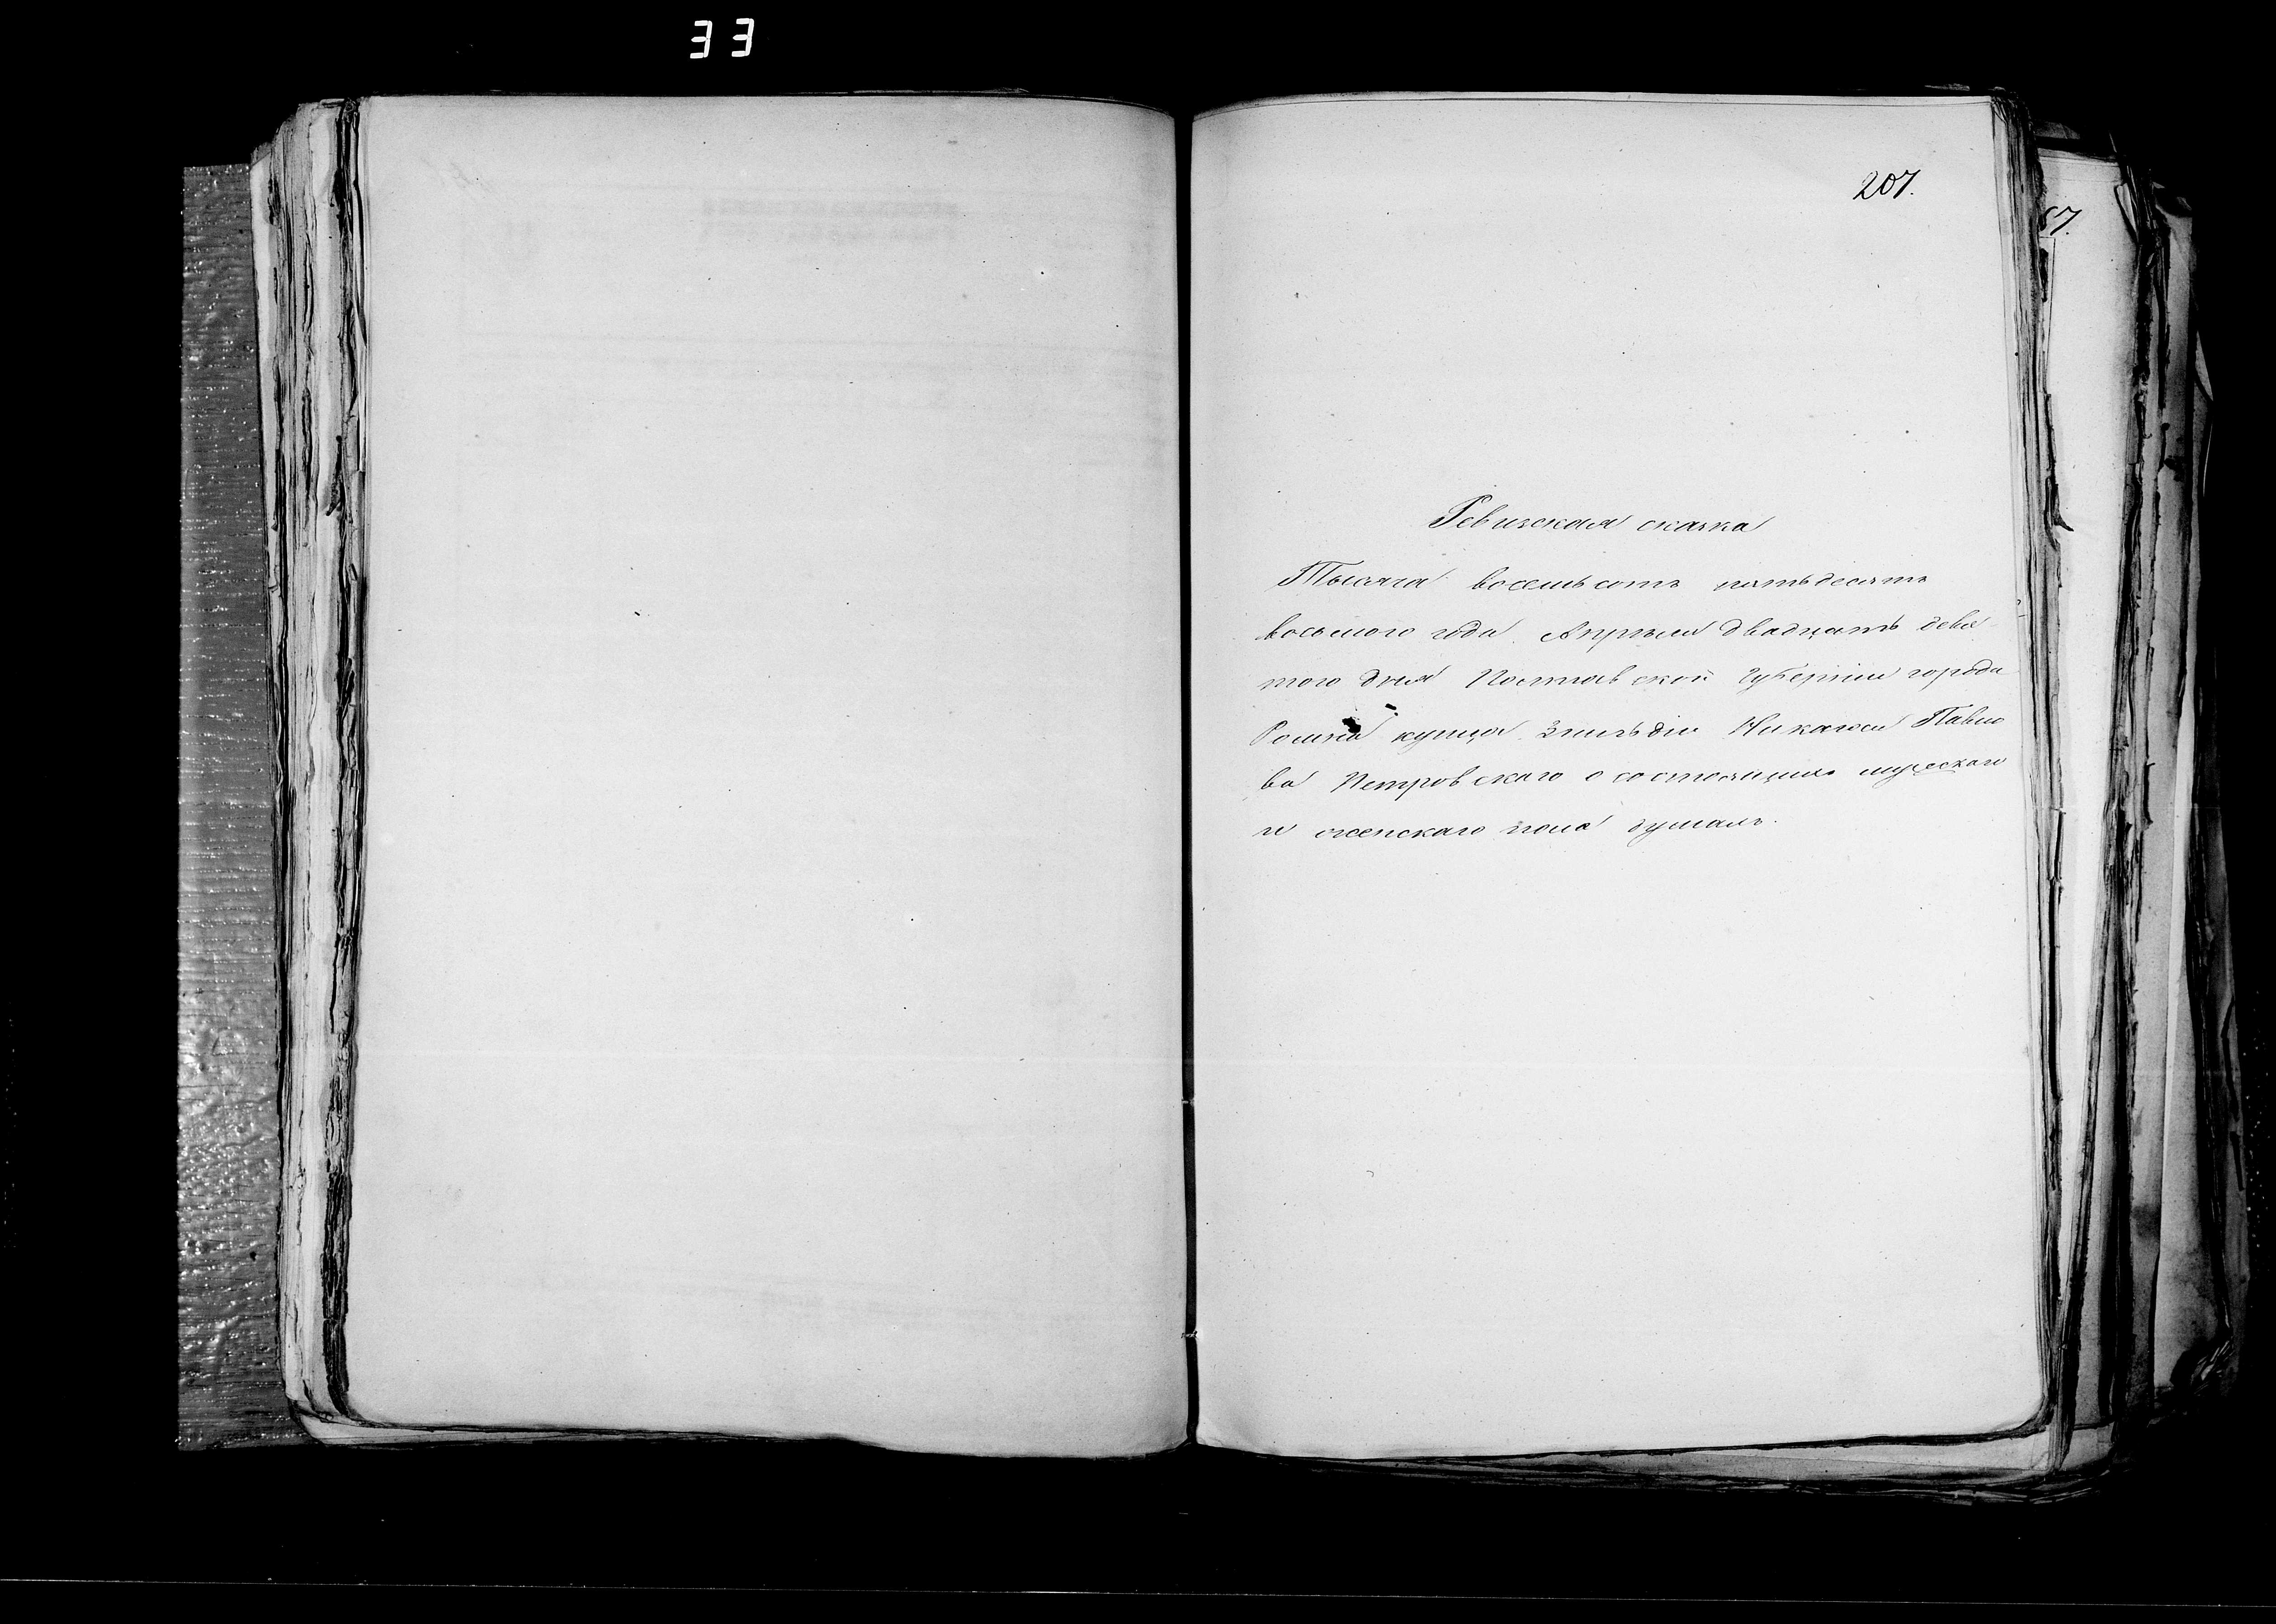 33
207.
57.
Ревизская сказка
Тысяча восемьсотъ пятьдесятъ
восьмого года Апреля двадцать девя-
того дня Полтавской Губернии города
Ромна купца 3 гильдіи Павло
ва Петровского о состоящихъ мужеского
и женскаго пола душахъ.